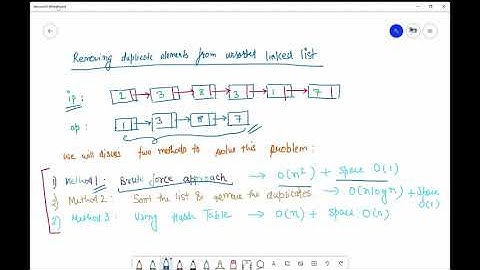 Microsoft Whiteboard
Removing duplicate elements from unsorted linked list
ip : 2 3 8 3 1 7
op : 1 3 8 7
we will discuss two methods to solve this problem :
1) Method 1 : Brute force approach → O(n²) + Space O(1)
2) Method 2 : Sort the list & remove the duplicates → O(nlogn) + Space O(1)
3) Method 3 : Using Hash Table → O(n) + Space O(n)